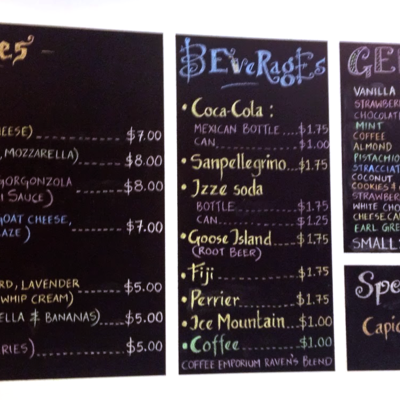 es
HEESE) $7.00
, MOZZARELLA) $8.00
GORGONZOLA $8.00
I SAUCE)
GOAT CHEESE, $7.00
AZE)
RD, LAVENDER $5.00
WHIP CREAM)
ELLA & BANANAS) $5.00
RIES) $5.00
BEVERAGES
• Coca-Cola :
MEXICAN BOTTLE $1.75
CAN $1.00
• Sanpellegrino $1.75
• Izze soda
BOTTLE $1.75
CAN $1.25
• Goose Island $1.75
(ROOT BEER)
• Fiji $1.75
• Perrier $1.75
• Ice Mountain $1.00
• Coffee $1.00
COFFEE EMPORIUM RAVEN'S BLEND
GEL
VANILLA
STRAWBER
CHOCOLAT
MINT
COFFEE
ALMOND
PISTACHIO
STRACCIAT
COCONUT
COOKIES &
STRAWBER
WHITE CHO
CHEESECA
EARL GRE
SMALL
Spe
Capic